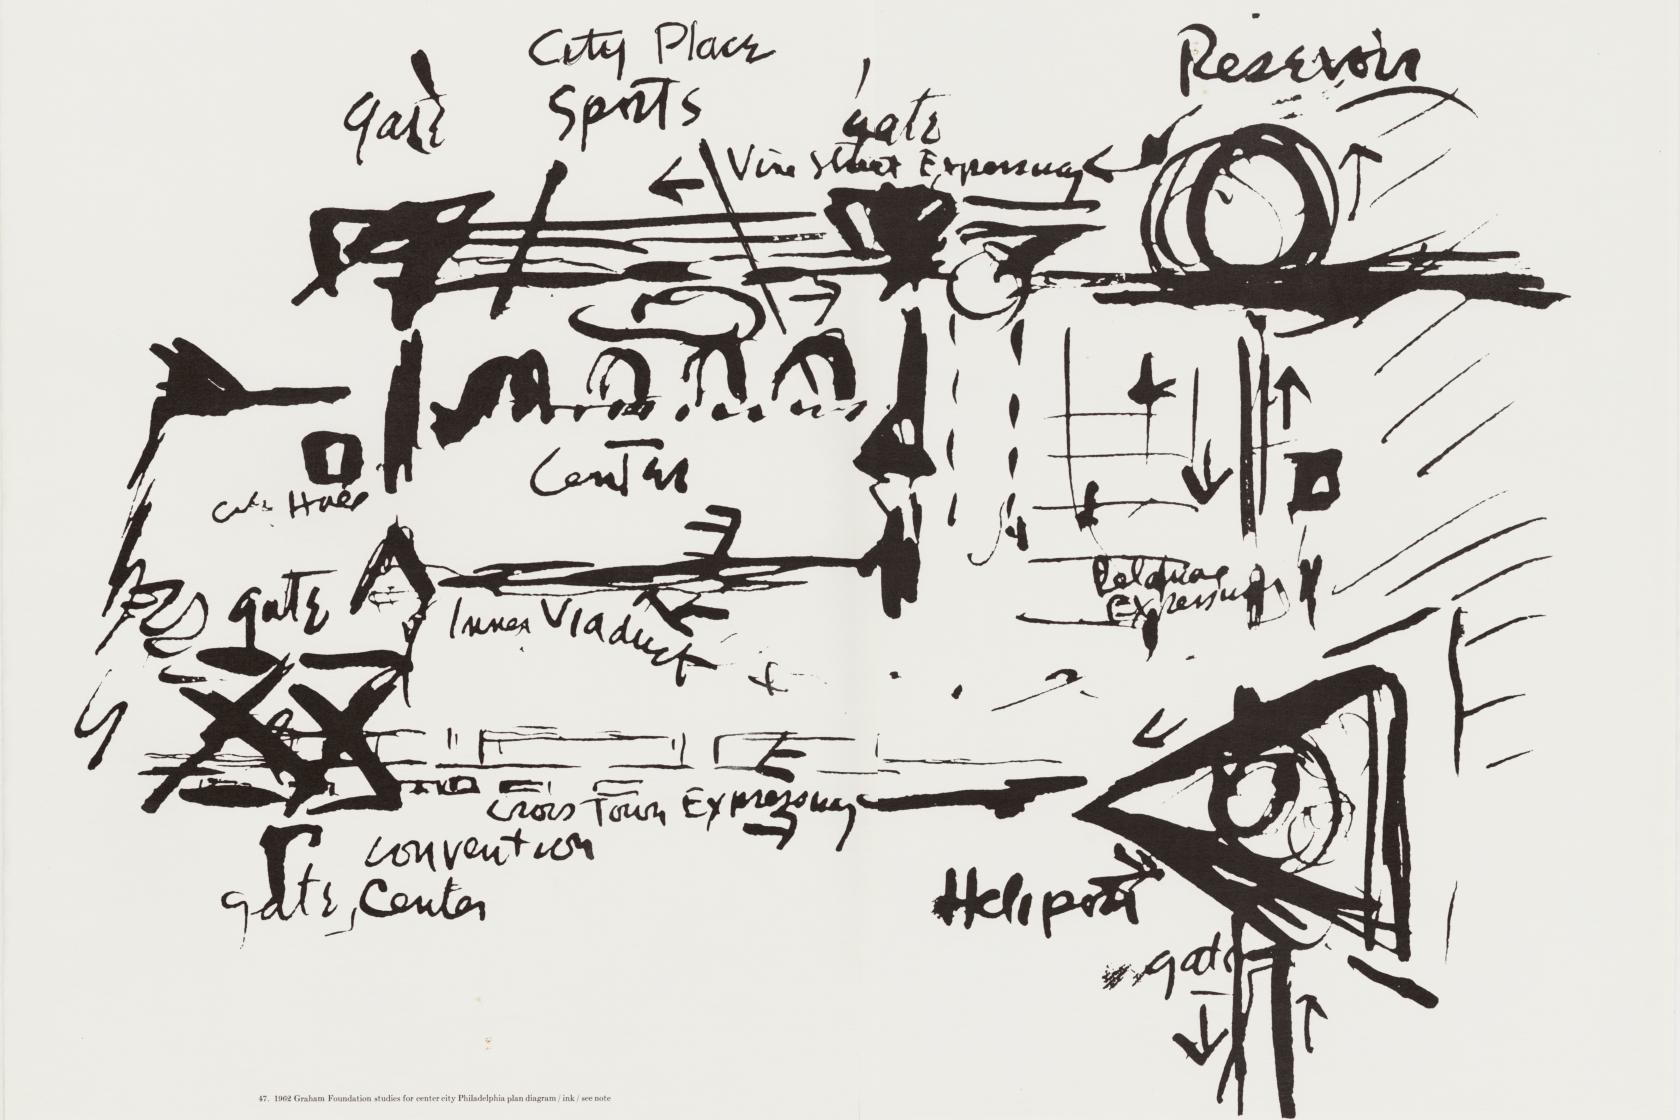 City Place
Sports
gate
gate
Reservoir
Vine Street Expressway
Center
City Hall
gate
Inner Viaduct
Delaware
Expressway
Cross Town Expressway
convention
Center
gate
Heliport
gate
47. 1962 Graham Foundation studies for center city Philadelphia plan diagram / ink / see note